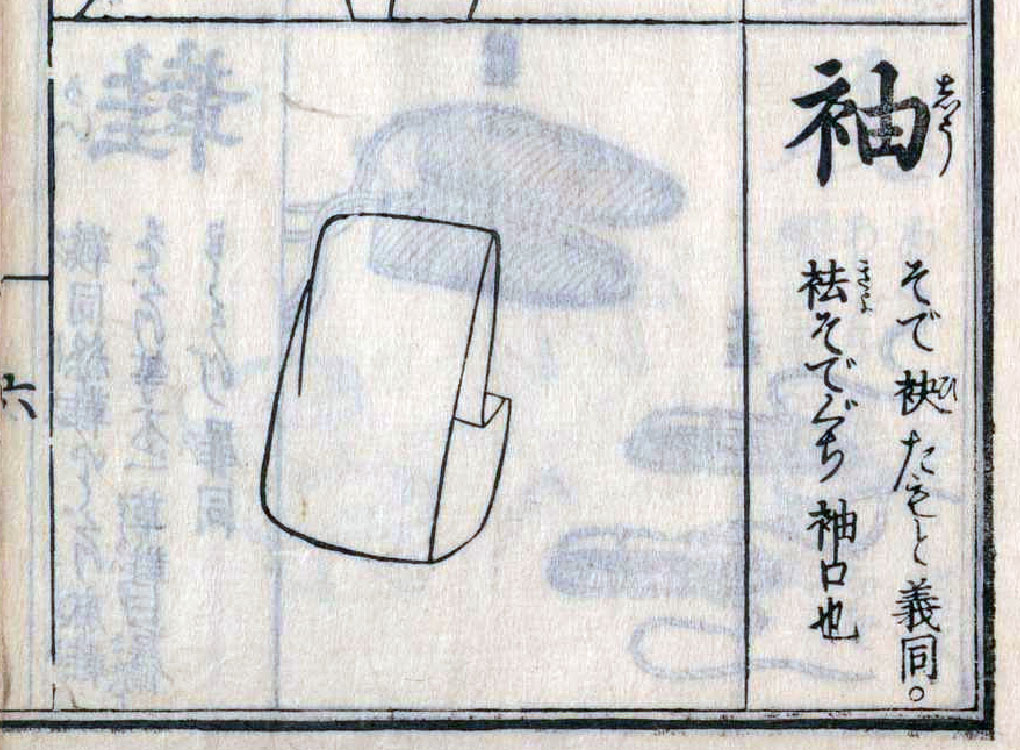 袖
しう
そで 袂 たもと 義同。
ひ
袪 そでぐち 袖口也
きよ
六